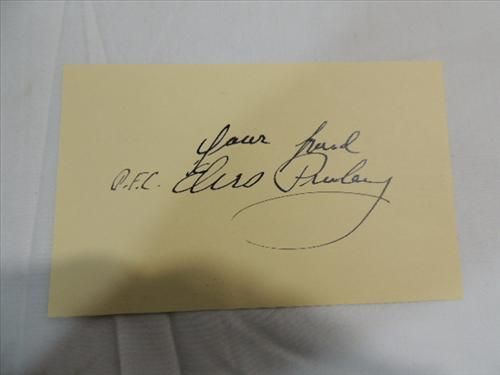 Your friend
P.F.C. Elvis Presley